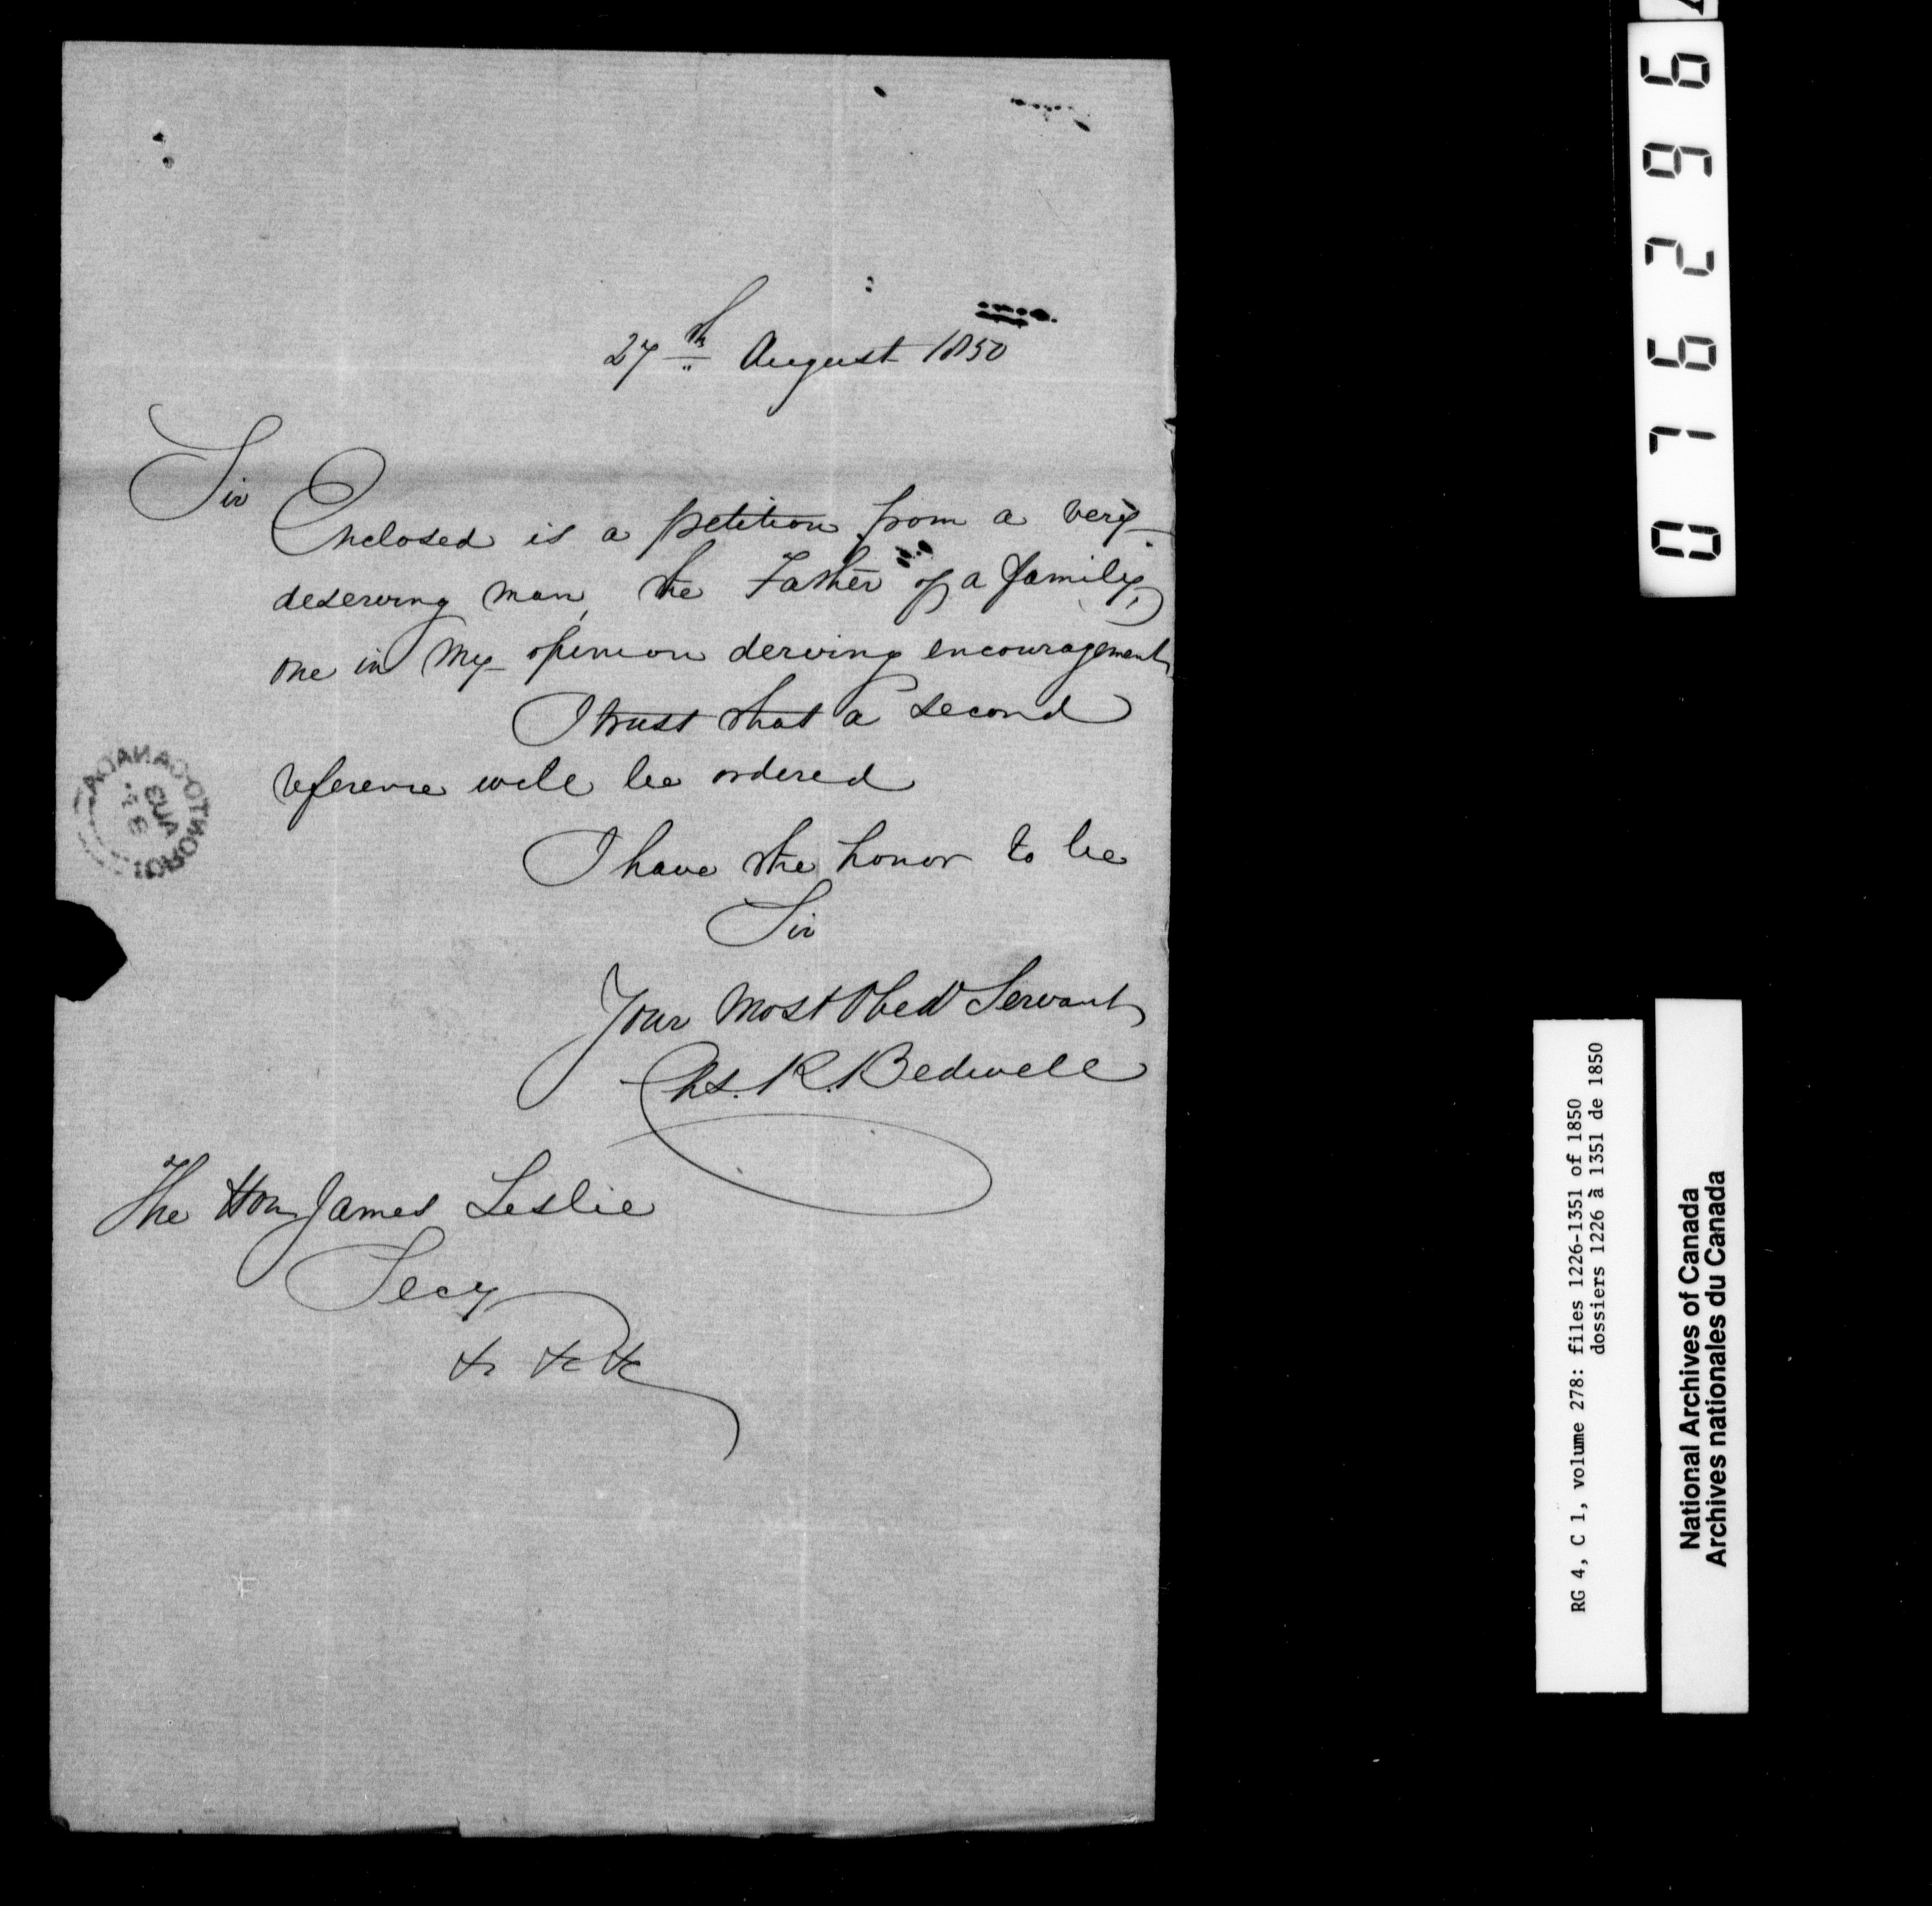 27th August 1850
Sir
Enclosed is a petition from a very
deserving man, the Father of a family,
one in my opinion derving encouragement
I trust that a second
reference will be ordered
I have the honor to be
Sir
Your Most Obedt Servant
Chs. R. Bedwell
The Hon James Leslie
Secy
&c &c &c
TORONTO-CANADA
AUG
076296
RG 4, C 1, volume 278: files 1226-1351 of 1850
dossiers 1226 à 1351 de 1850
National Archives of Canada
Archives nationales du Canada